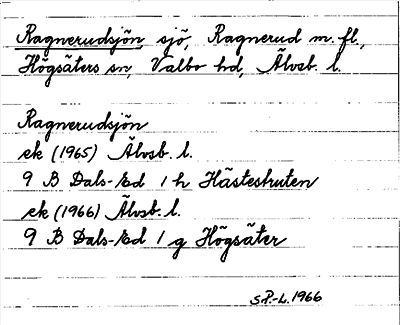 Ragnerudsjön sjö, Ragnerud m. fl.,
Högsäters sn, Valbo hd, Älvsb. l.
Ragnerudsjön
ek (1965) Älvsb. l.
9 B Dals-Ed 1 h Hästeskuten
ek (1966) Älvsb. l.
9 B Dals-Ed 1 g Högsäter
S.P.-L. 1966